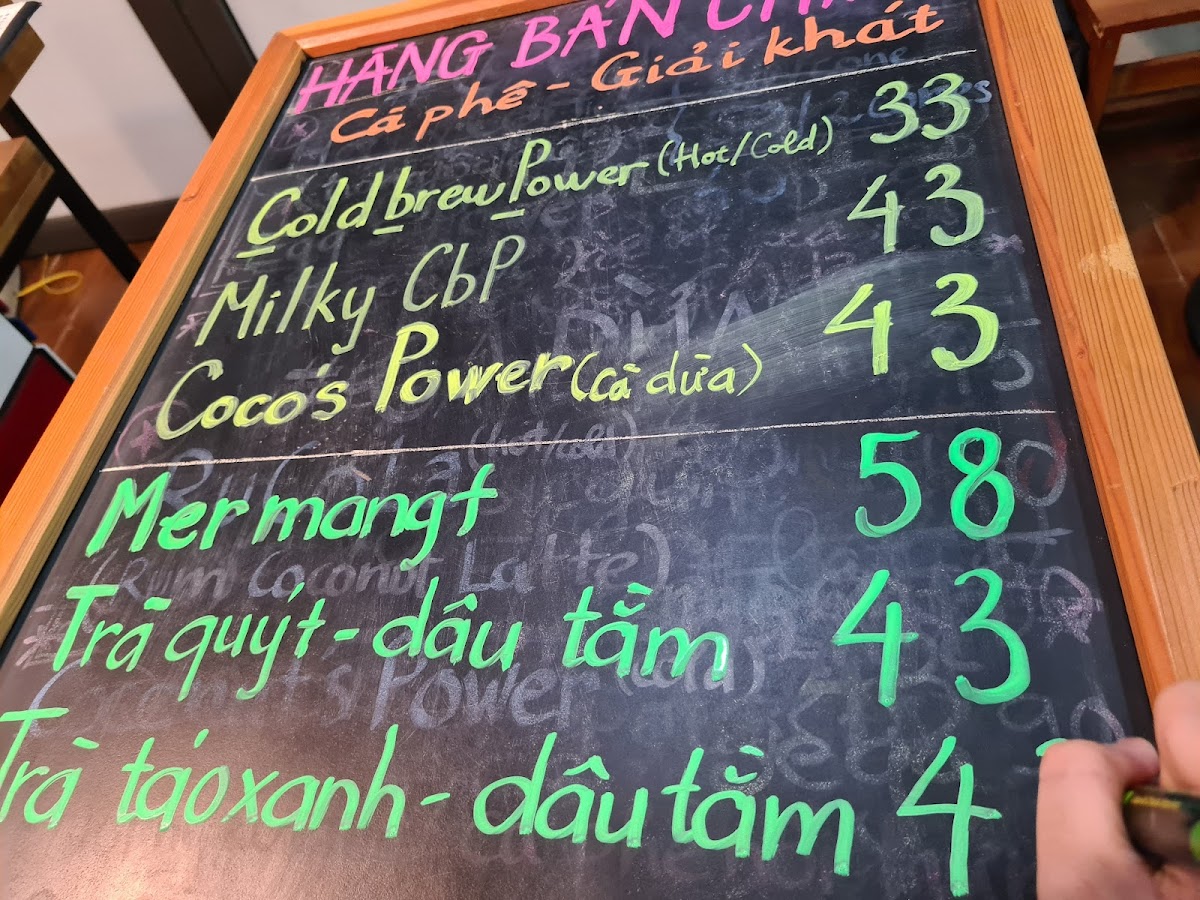 HÀNG BÁN
Cà phê - Giải khát
Coldbrew Power (Hot/Cold) 33
Milky CbP 43
Coco's Power (cà dừa) 43
Mermangt 58
Trà quýt - dâu tằm 43
Trà táo xanh - dâu tằm 4
(hot/cold)
(Rum Coconut Latte)
Coconut's Power